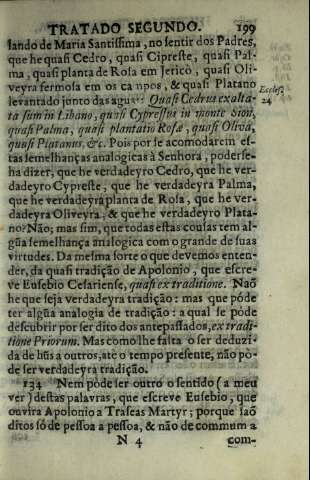 TRATADO SEGUNDO. 199
lando de Maria Santissima, no sentir dos Padres,
que he quasi Cedro, quasi Cipreste, quasi Pal-
ma, quasi planta de Rosa em Jericò, quasi Oli-
veyra fermosa em os campos, & quasi Platano
levantado junto das aguas: Quasi Cedrus exalta-
Eccles.
24
ta sum in Libano, quasi Cypressus in monte Sion,
quasi Palma, quasi plantatio Rosæ, quasi Oliva,
quasi Platanus, &c. Pois por se acomodarem es-
tas semelhanças analogicas à Senhora, poderse-
ha dizer, que he verdadeyro Cedro, que he ver-
dadeyro Cypreste, que he verdadeyra Palma,
que he verdadeyra planta de Rosa, que he ver-
dadeyra Oliveyra, & que he verdadeyro Plata-
no? Não; mas sim, que todas estas cousas tem al-
gũa semelhança analogica com o grande de suas
virtudes. Da mesma sorte o que devemos enten-
der, da quasi tradição de Apolonio, que escre-
ve Eusebio Cesariense, quasi ex traditione. Naõ
he que seja verdadeyra tradição: mas que póde
ter algũa analogia de tradição: a qual se póde
descubrir por ser dito dos antepassados, ex tradi-
tione Priorum. Mas como lhe falta o ser deduzi-
da de hũs a outros, atè o tempo presente, não pó-
de ser verdadeyra tradição.
134 Nem póde ser outro o sentido (a meu
ver) destas palavras, que escreve Eusebio, que
ouvira Apolonio a Traseas Martyr; porque saõ
ditos só de pessoa a pessoa, & não de commum a
N 4 com-